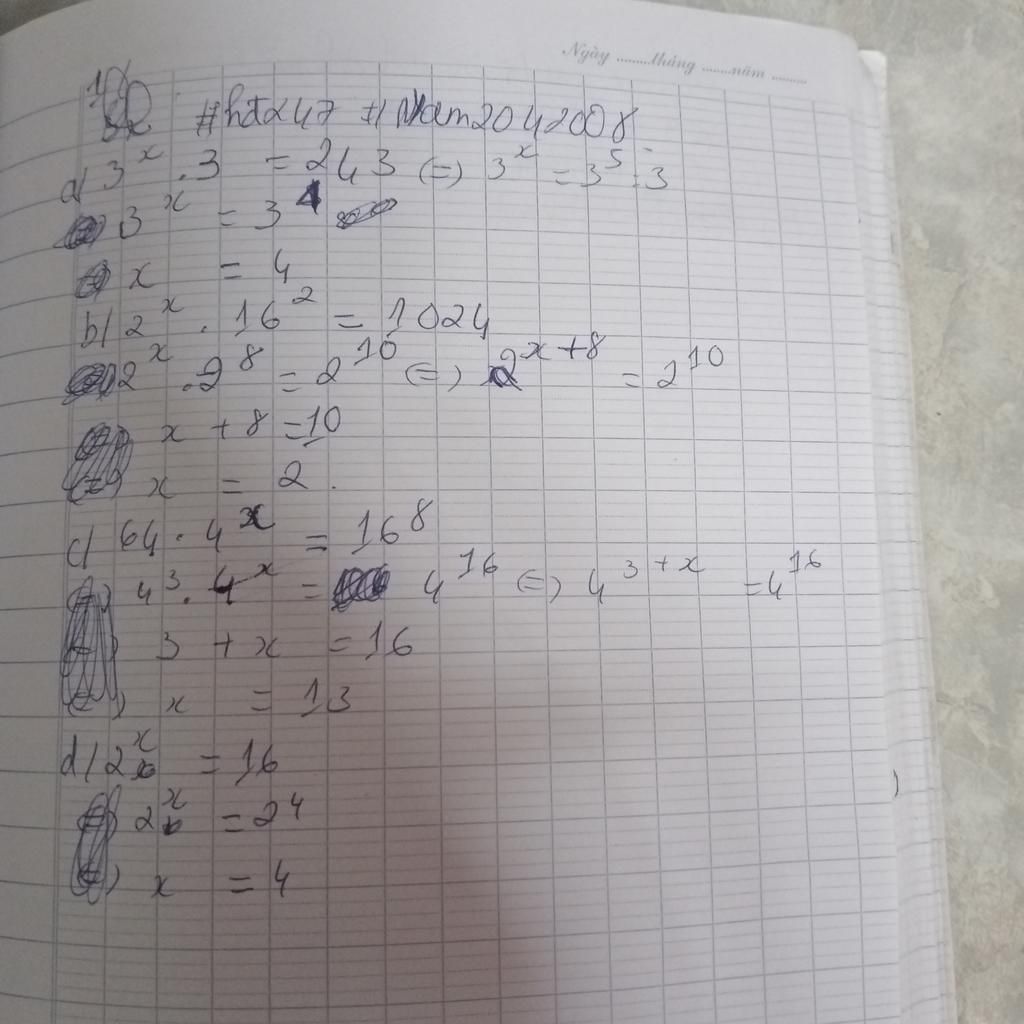 Ngày ........tháng .......năm ........
#hta247 #Nam2042008
a/ 3^x . 3 = 243 (=) 3^x = 3^5 : 3
3^x = 3^4
x = 4
b/ 2^x . 16^2 = 1024
2^x . 2^8 = 2^10 (=) 2^x+8 = 2^10
x + 8 = 10
(=) x = 2.
c/ 64 . 4^x = 16^8
(=) 4^3 . 4^x = 4^16 (=) 4^3+x = 4^16
3 + x = 16
(=) x = 13
d/ 2^x = 16
(=) 2^x = 2^4
(=) x = 4